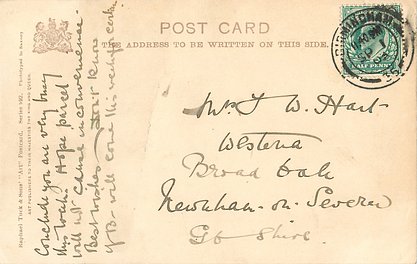 POST CARD
THE ADDRESS TO BE WRITTEN ON THIS SIDE.
BIRMINGHAM
HALF PENNY
Mr J W. Hart
Westeria
Broad Oak
Newnham-on-Severn
Glo Shire.
Conclude you are very busy
this week. Hope parcel
will not cause inconvenience.
Best wishes Don't know
if B- will come this week for certain
Raphael Tuck & Sons' "Art" Postcard. Series
ART PUBLISHERS TO THEIR MAJESTIES THE KING AND QUEEN.